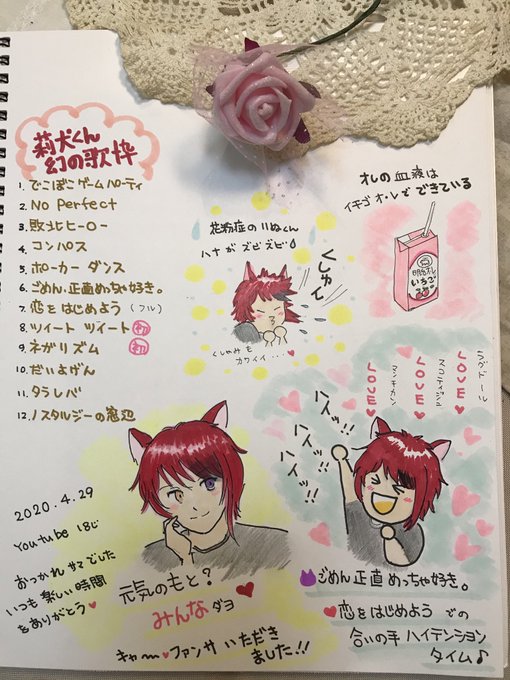 莉犬くん
幻の歌枠
1. でこぼこゲームパーティ
2. No Perfect
3. 敗北ヒーロー
4. コンパス
5. ポーカー ダンス
6. ごめん、正直めっちゃ好き。
7. 恋をはじめよう (フル)
8. ツイート ツイート 初
9. ネガリズム 初
10. だいよげん
11. タラレバ
12. ノスタルジーの窓辺
花粉症のいぬくん
ハナがズビズビ
くしゅん
くしゃみも
カワイイ・・・
オレの血液は
イチゴオ・レでできている
いちご
ラグドール
LOVE
スコティッシュ
LOVE
マンチカン
LOVE
ハイッ!!
ハイッ!!
ハイッ!!
ごめん正直めっちゃ好き。
恋をはじめよう での
合いの手 ハイテンション
タイム♪
2020.4.29
Youtube 18じ
おつかれサマでした
いつも楽しい時間
をありがとう♥
元気のもと?
みんなダヨ
キャー〜♥ファンサ いただき
ました!!